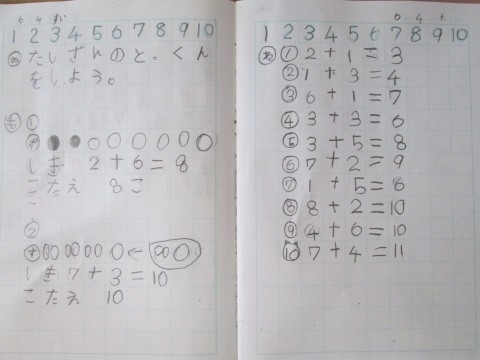 6 4 すい
1 2 3 4 5 6 7 8 9 10
め たしざんのと、くん
をしよう。
も ①
ず
しき 2+6=8
こたえ 8こ
②
ず
しき 7+3=10
こたえ 10
6 4
1 2 3 4 5 6 7 8 9 10
① 2+1=3
② 1+3=4
③ 6+1=7
④ 3+3=6
⑤ 3+5=8
⑥ 7+2=9
⑦ 1+5=6
⑧ 8+2=10
⑨ 4+6=10
⑩ 7+4=11